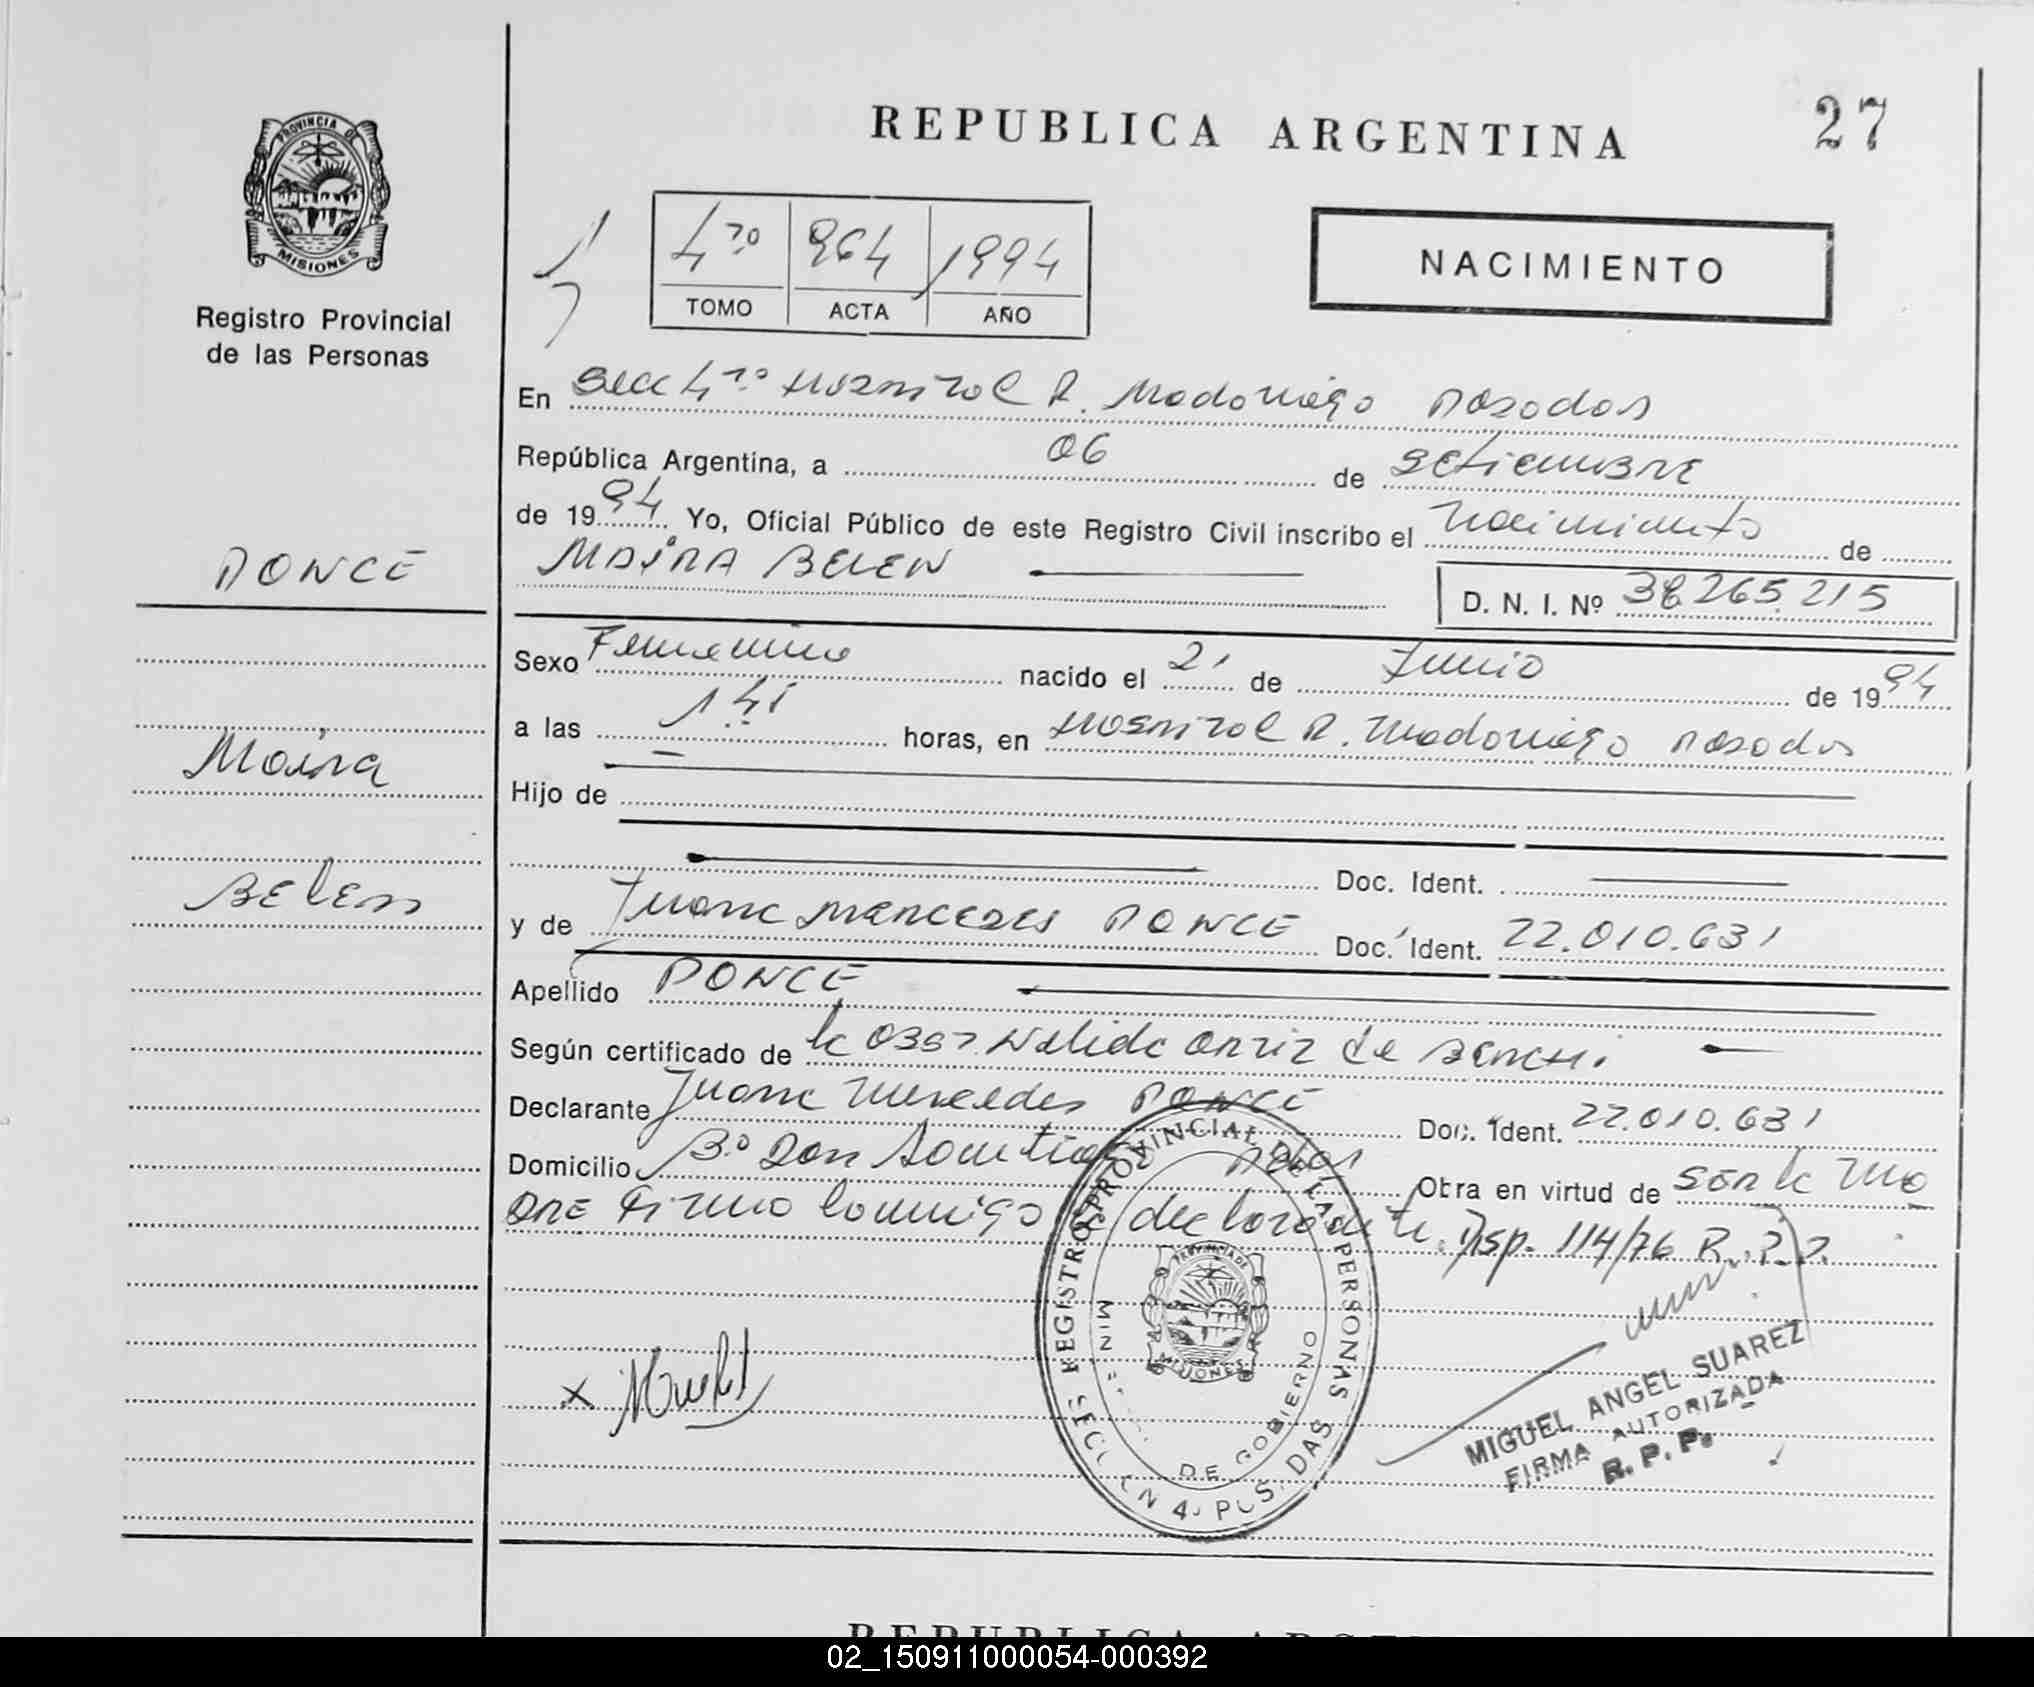 PROVINCIA DE
MISIONES
Registro Provincial
de las Personas
PONCE
Maira
Belen
REPUBLICA ARGENTINA
27
4to 964 1994
TOMO ACTA AÑO
NACIMIENTO
En Secc 4ta Hospital R. Madariaga Posadas
República Argentina, a 06 de Setiembre
de 1994 Yo, Oficial Público de este Registro Civil inscribo el Nacimiento de
MAIRA BELEN
D. N. I. Nº 38.265.215
Sexo Femenino nacido el 21 de Junio de 1994
a las horas, en Hospital R. Madariaga Posadas
Hijo de
Doc. Ident.
y de Juana Mercedes PONCE Doc. Ident. 22.010.631
Apellido PONCE
Según certificado de la Obst. Nelida Ortiz de Benchi
Declarante Juana Mercedes PONCE Doc. Ident. 22.010.631
Domicilio Bº Don Santiago Pdas Obra en virtud de ser la ma
dre firma conmigo la declarante. Disp. 114/76 R.P.P.
REGISTRO PROVINCIAL DE LAS PERSONAS
PROVINCIA DE
MISIONES
DE GOBIERNO
MIGUEL ANGEL SUAREZ
FIRMA AUTORIZADA
R. P. P.
REPUBLICA
02_150911000054-000392